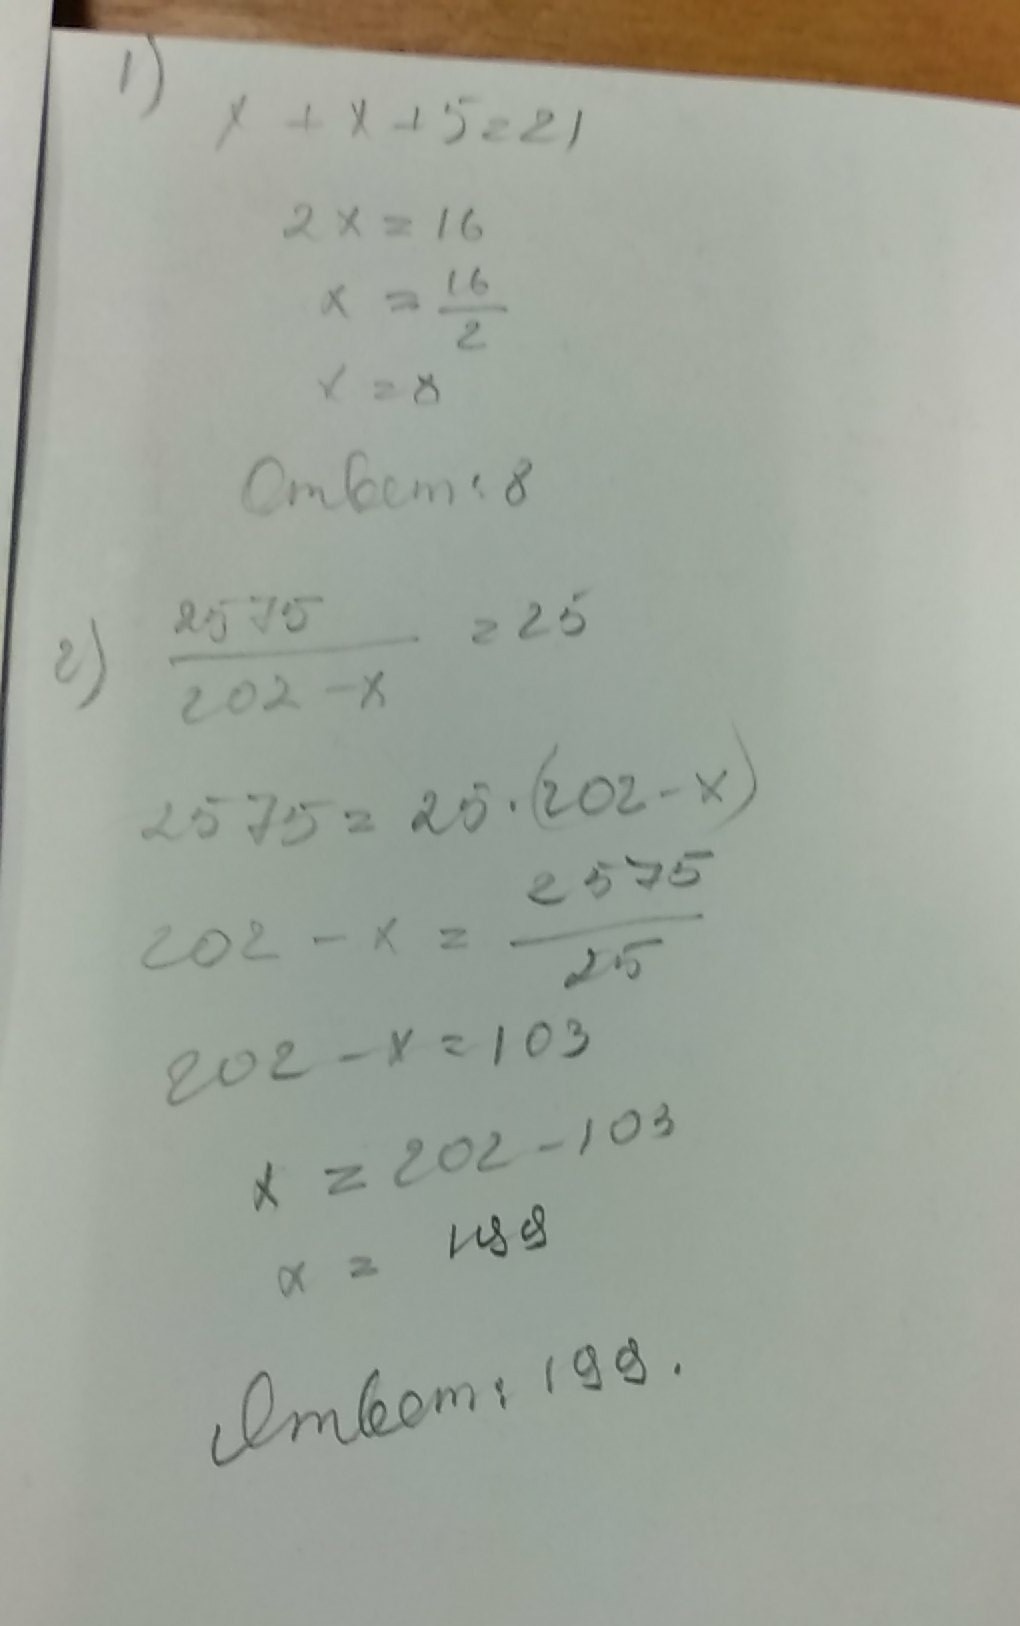 1)
x + x + 5 = 21
2x = 16
x = 16/2
x = 8
Ответ: 8
2) 2575/(202 - x) = 25
2575 = 25 · (202 - x)
202 - x = 2575/25
202 - x = 103
x = 202 - 103
x = 199
Ответ: 199.